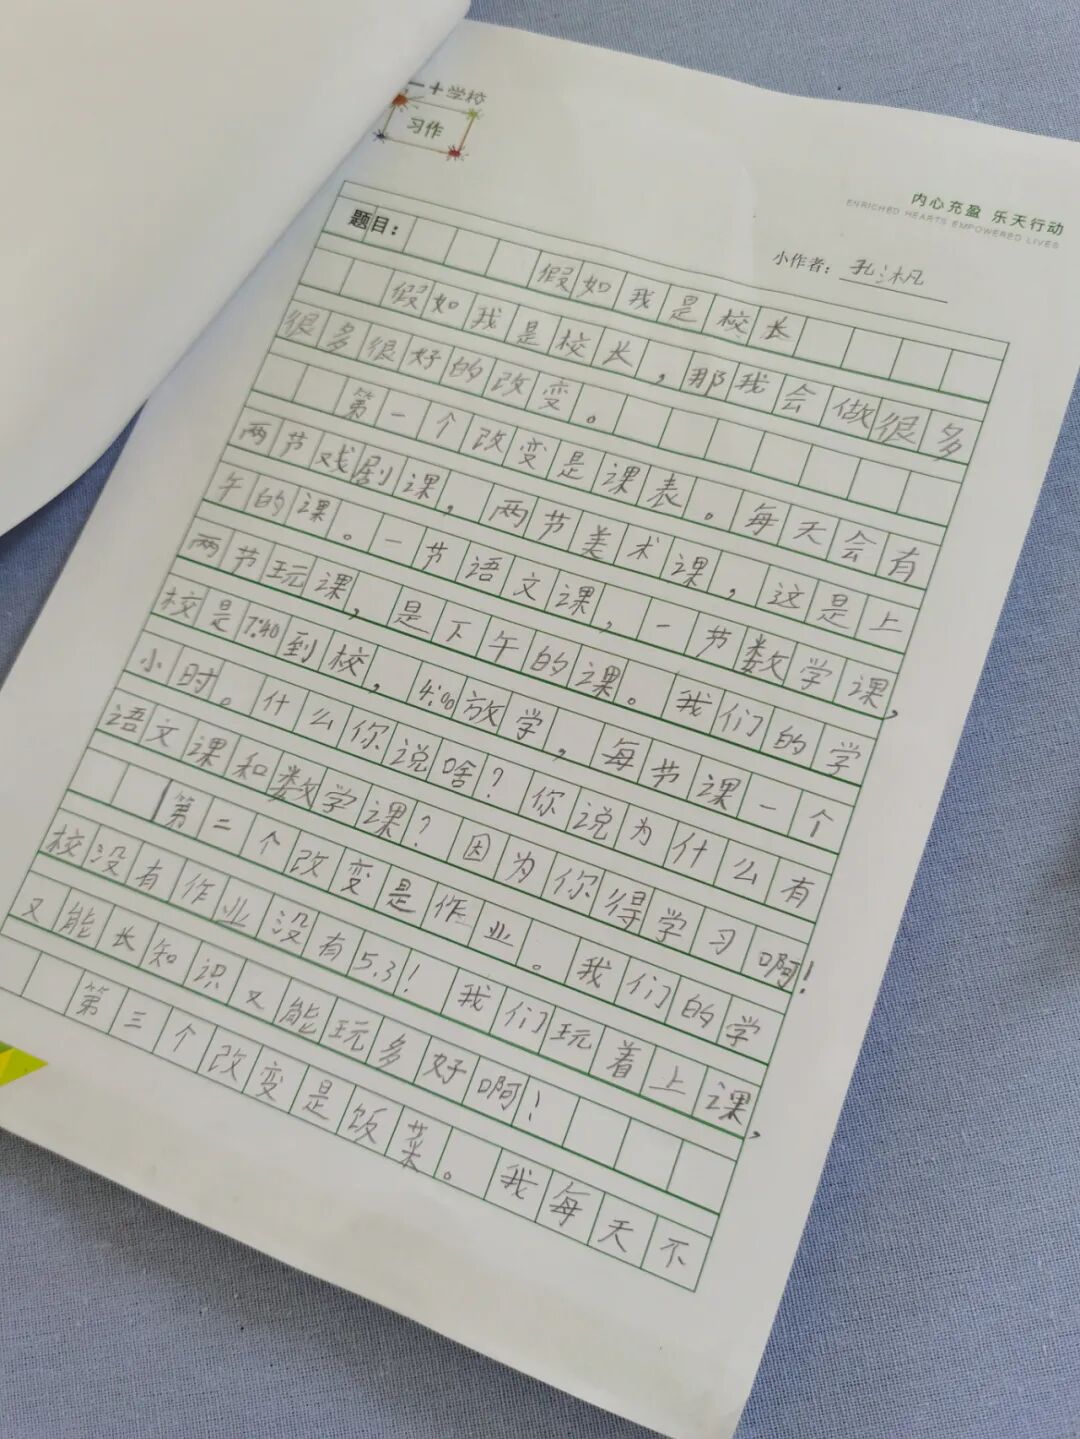 一十学校
习作
内心充盈 乐天行动
ENRICHED HEARTS EMPOWERED LIVES
小作者：孔沐凡
题目：假如我是校长
假如我是校长，那我会做很多
很多很好的改变。
第一个改变是课表。每天会有
两节戏剧课，两节美术课，这是上
午的课。一节语文课，一节数学课，
两节玩课，是下午的课。我们的学
校是7:40到校，4:00放学，每节课一个
小时。什么你说啥？你说为什么有
语文课和数学课？因为你得学习啊！
第二个改变是作业。我们的学
校没有作业没有5.3！我们玩着上课，
又能长知识又能玩多好啊！
第三个改变是饭菜。我每天不